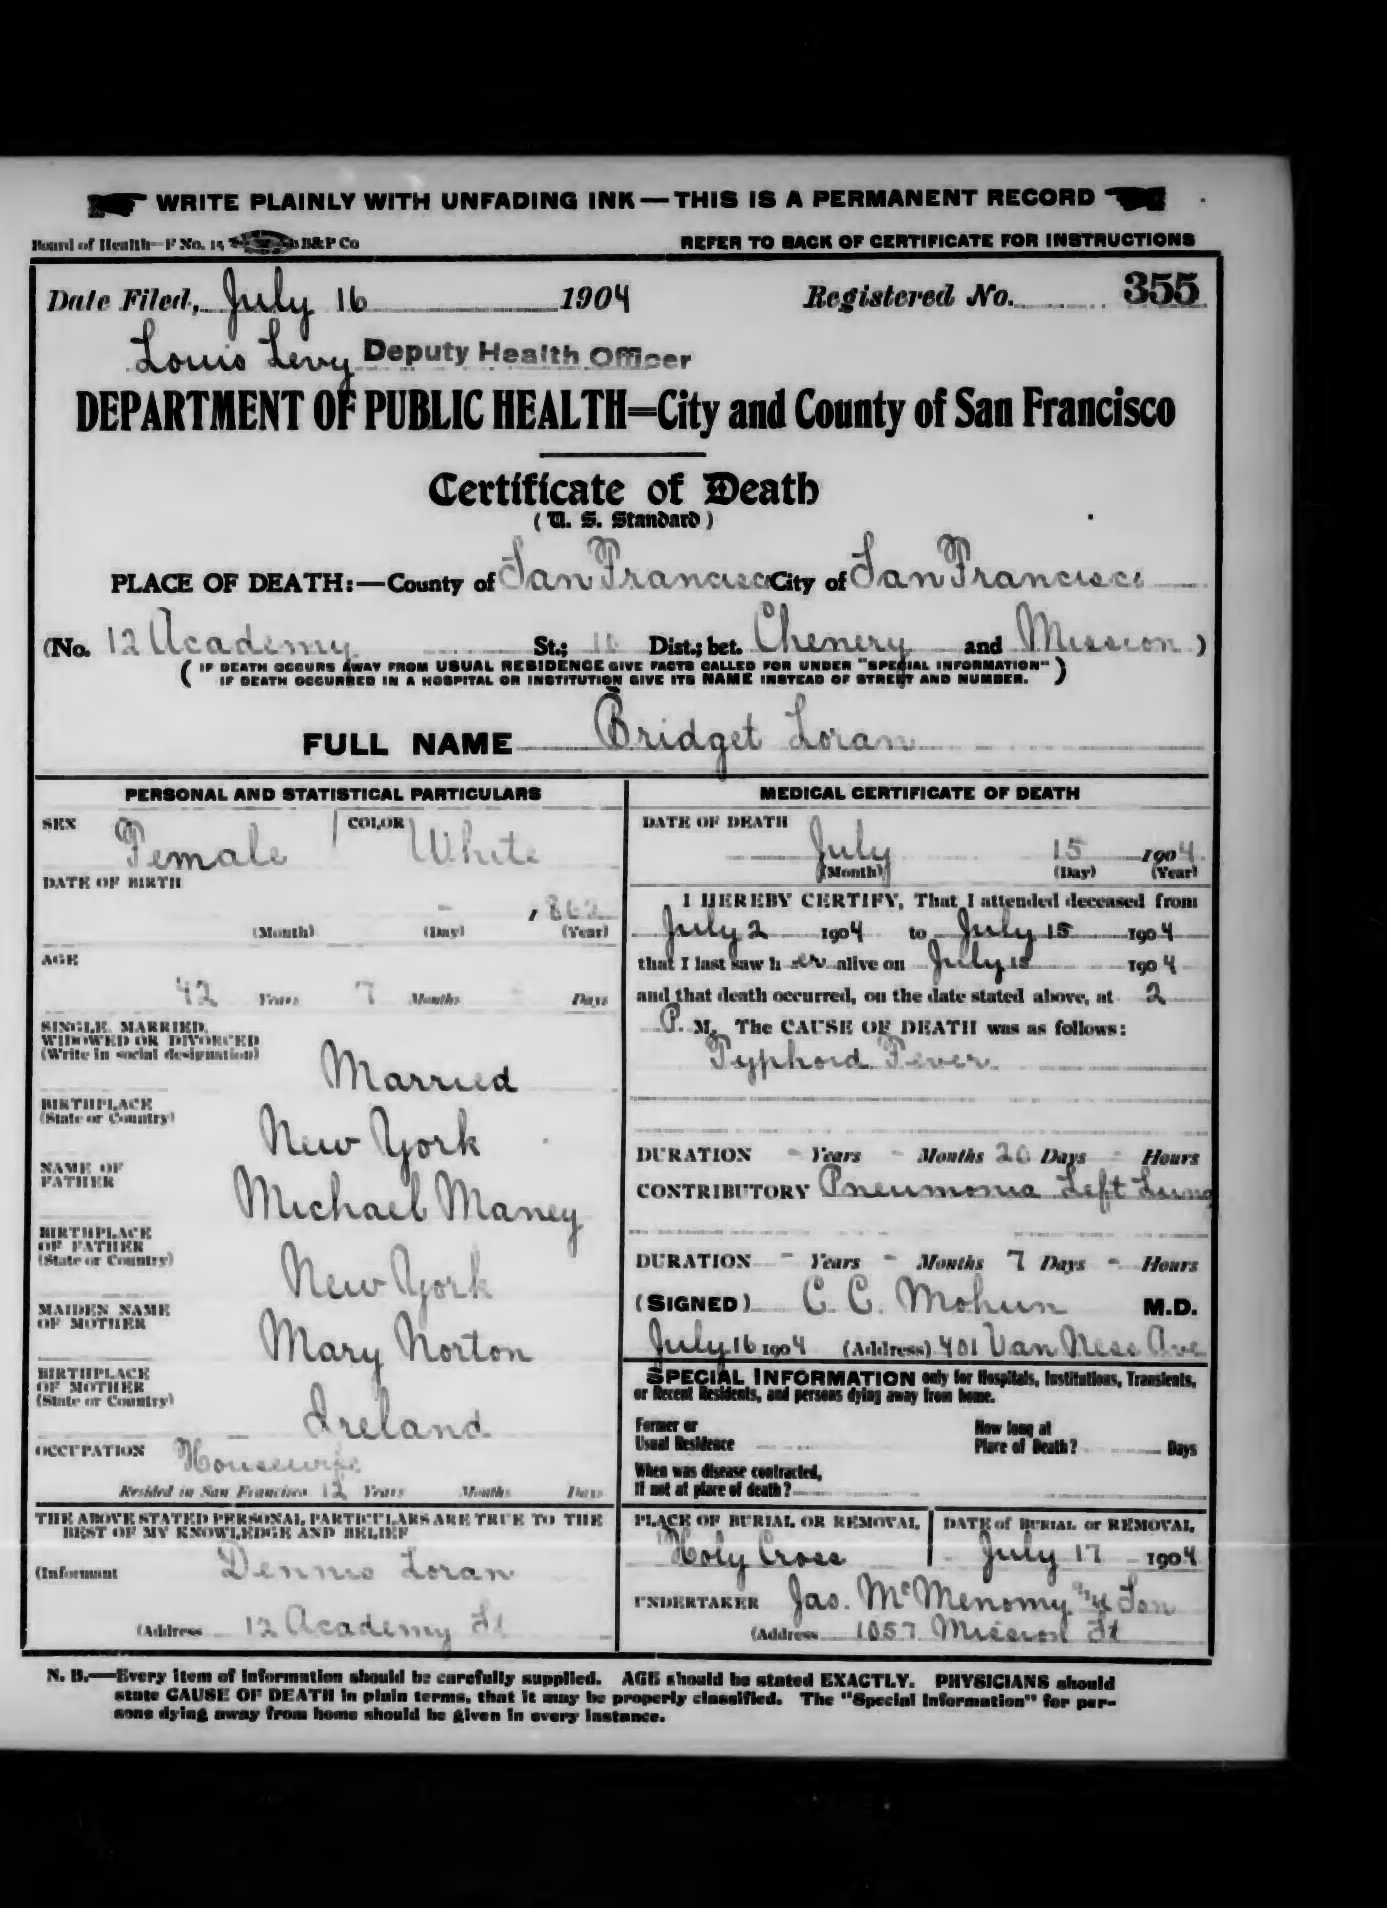 WRITE PLAINLY WITH UNFADING INK — THIS IS A PERMANENT RECORD
Board of Health—F No. 15 B&P Co REFER TO BACK OF CERTIFICATE FOR INSTRUCTIONS
Date Filed, July 16 1904 Registered No. 355
Louis Levy Deputy Health Officer
DEPARTMENT OF PUBLIC HEALTH=City and County of San Francisco
Certificate of Death
(U. S. Standard)
PLACE OF DEATH:—County of San Francisco City of San Francisco
(No. 12 Academy St.; Dist.; bet. Chenery and Mission)
(IF DEATH OCCURS AWAY FROM USUAL RESIDENCE GIVE FACTS CALLED FOR UNDER "SPECIAL INFORMATION"
IF DEATH OCCURRED IN A HOSPITAL OR INSTITUTION GIVE ITS NAME INSTEAD OF STREET AND NUMBER.)
FULL NAME Bridget Loran
PERSONAL AND STATISTICAL PARTICULARS
SEX Female COLOR White
DATE OF BIRTH
- , 862
(Month) (Day) (Year)
AGE
42 Years 7 Months - Days
SINGLE, MARRIED,
WIDOWED OR DIVORCED
(Write in social designation)
Married
BIRTHPLACE
(State or Country)
New York
NAME OF
FATHER
Michael Maney
BIRTHPLACE
OF FATHER
(State or Country)
New York
MAIDEN NAME
OF MOTHER
Mary Norton
BIRTHPLACE
OF MOTHER
(State or Country)
Ireland
OCCUPATION Housewife
Resided in San Francisco 12 Years Months Days
THE ABOVE STATED PERSONAL PARTICULARS ARE TRUE TO THE
BEST OF MY KNOWLEDGE AND BELIEF
(Informant Dennis Loran
(Address 12 Academy St
MEDICAL CERTIFICATE OF DEATH
DATE OF DEATH
July 15 1904
(Month) (Day) (Year)
I HEREBY CERTIFY, That I attended deceased from
July 2 1904 to July 15 1904
that I last saw h er alive on July 15 1904
and that death occurred, on the date stated above, at 2
P. M. The CAUSE OF DEATH was as follows:
Typhoid Fever
DURATION - Years - Months 20 Days - Hours
CONTRIBUTORY Pneumonia Left Lung
DURATION - Years - Months 7 Days - Hours
(SIGNED) C. C. Mohun M.D.
July 16 1904 (Address) 401 Van Ness Ave
SPECIAL INFORMATION only for Hospitals, Institutions, Transients,
or Recent Residents, and persons dying away from home.
Former or
Usual Residence
How long at
Place of Death? Days
When was disease contracted,
If not at place of death?
PLACE OF BURIAL OR REMOVAL
Holy Cross
DATE of BURIAL or REMOVAL
July 17 1904
UNDERTAKER Jas. McMenomy & Son
(Address 1057 Mission St
N. B.—Every item of information should be carefully supplied. AGE should be stated EXACTLY. PHYSICIANS should
state CAUSE OF DEATH in plain terms, that it may be properly classified. The "Special Information" for per-
sons dying away from home should be given in every instance.